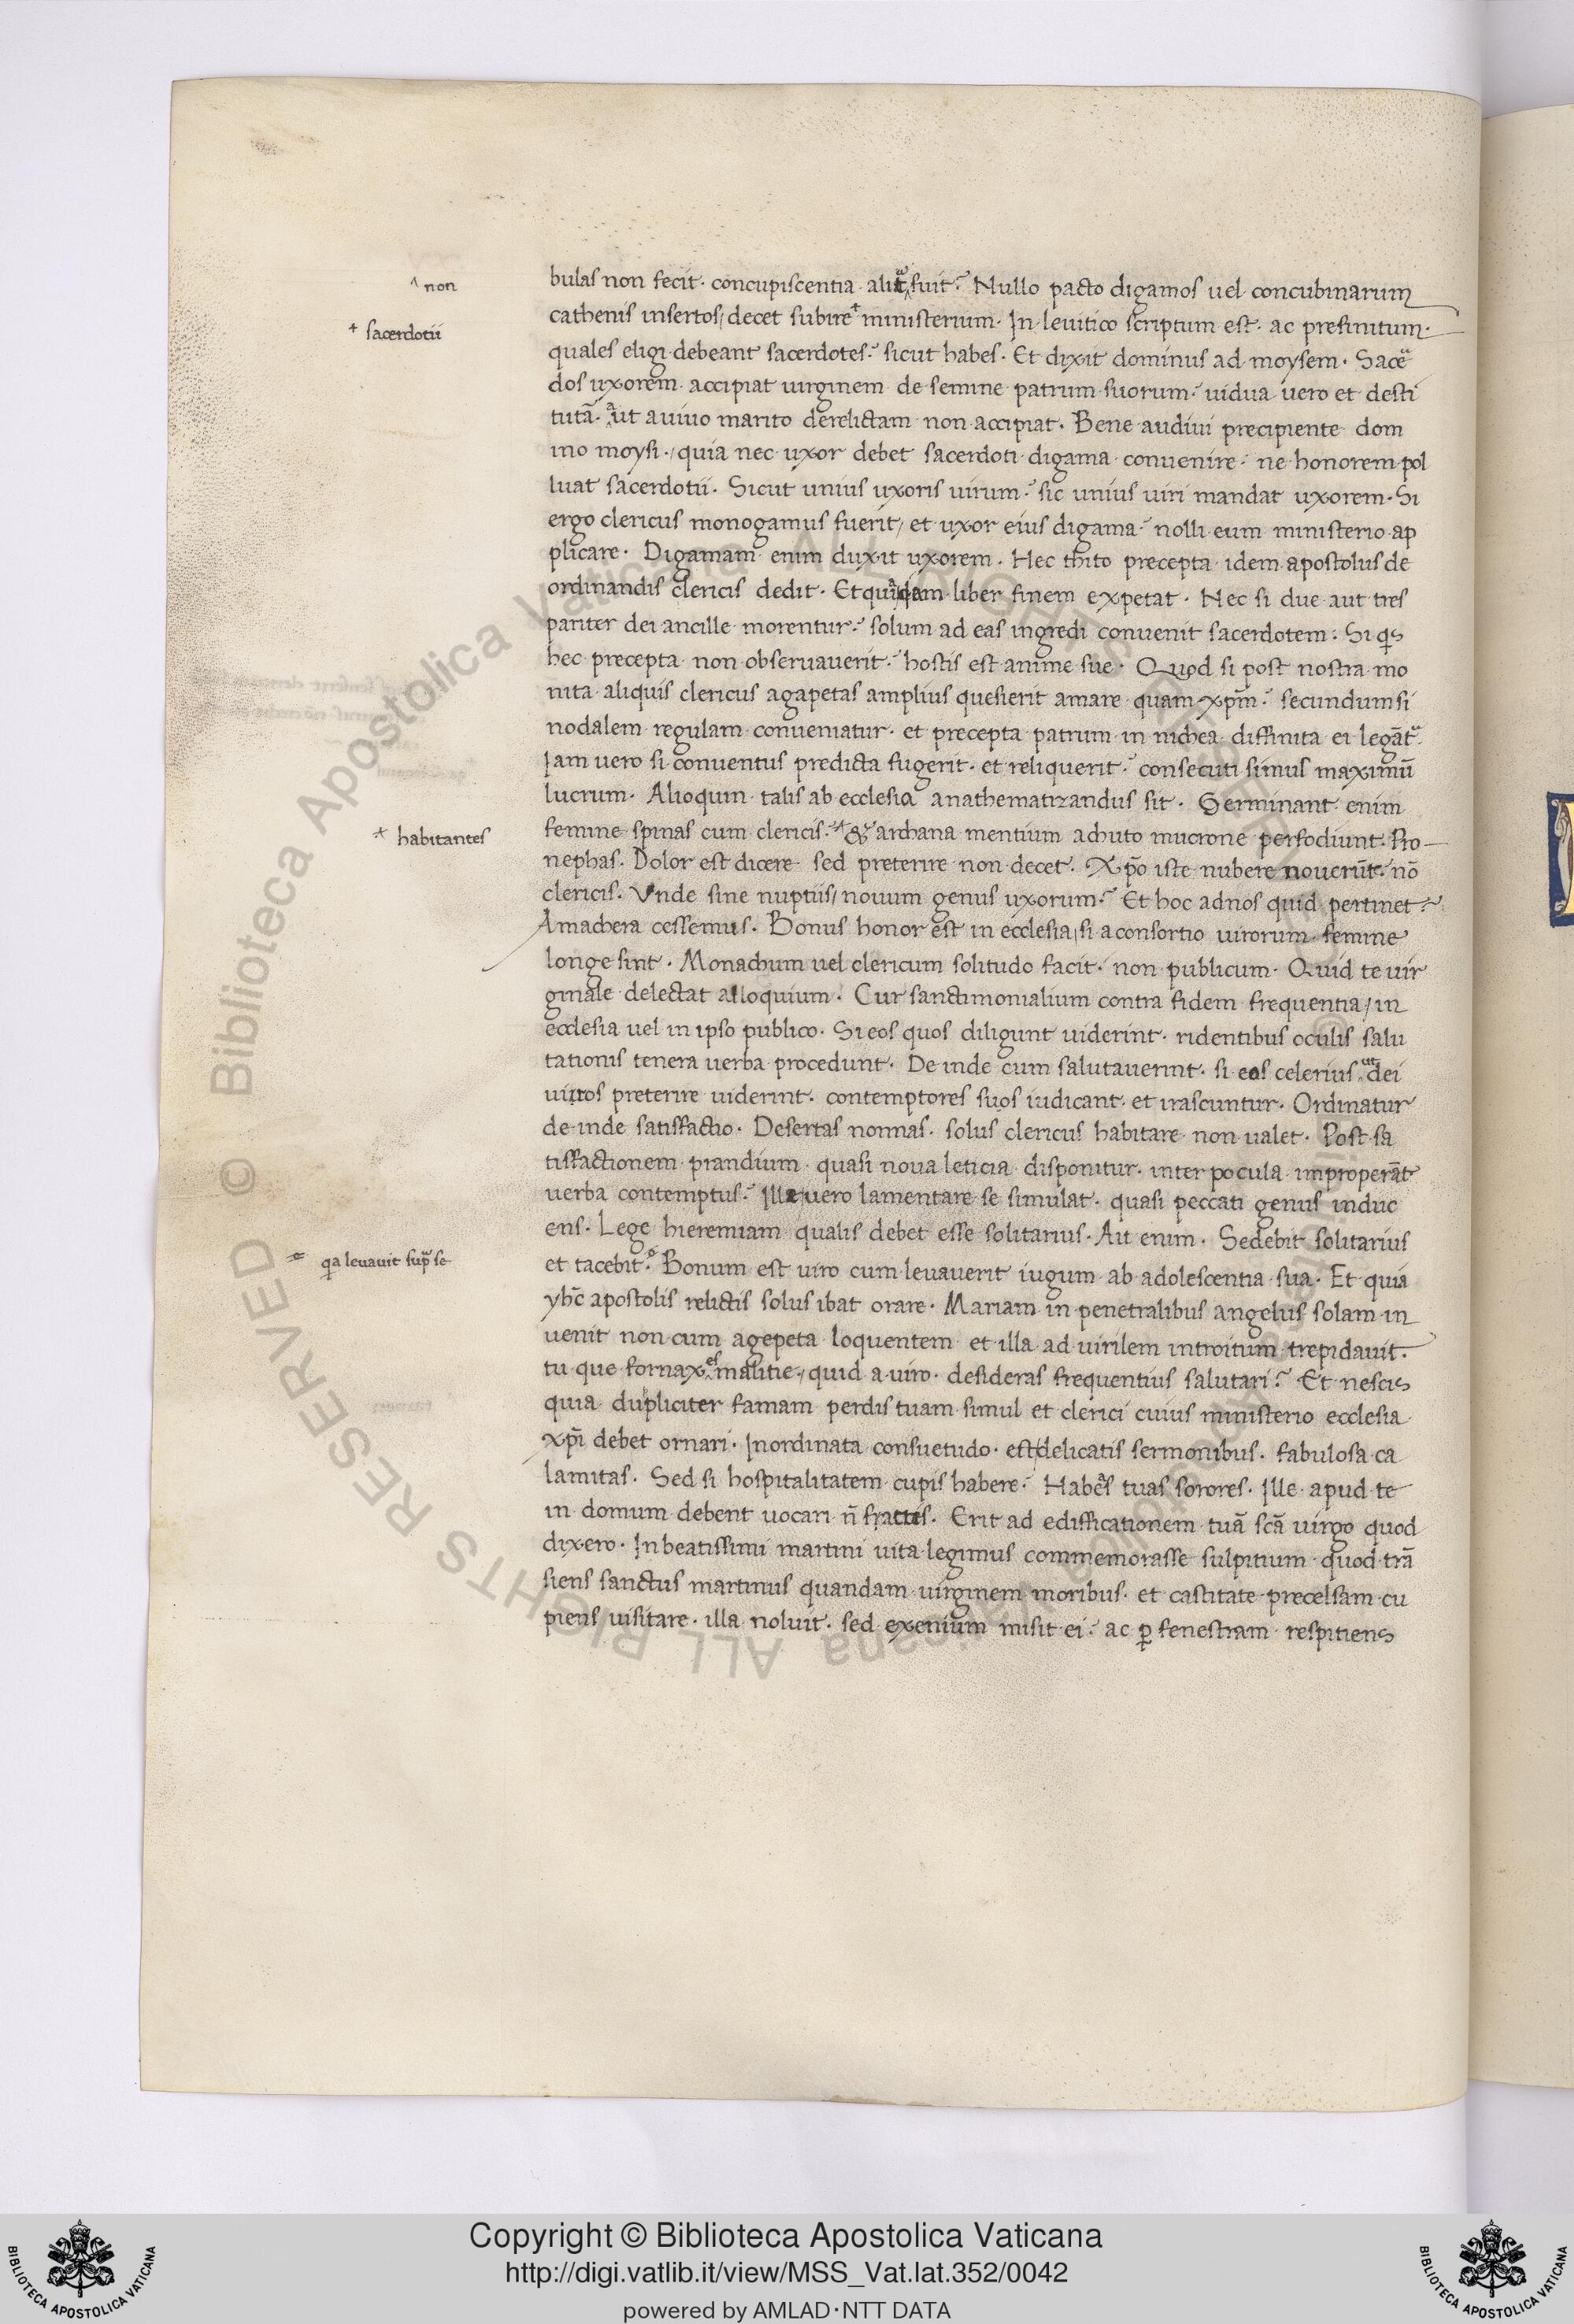 ^ non
bulas non fecit. concupiscentia aliat^fuit. Nullo pacto digamos uel concubinarum
+ sacerdotii
cathenis insertos, decet subire+ ministerium. In leuitico scriptum est. ac prefinitum.
quales eligi debeant sacerdotes. sicut habes. Et dixit dominus ad moysem. Sacer
dos uxorem accipiat uirginem de semine patrum suorum. uidua uero et desti
tutã. aut a uiuo marito derelictam non accipiat. Bene audiui precipiente dom
ino moysi, quia nec uxor debet sacerdoti digama conuenire. ne honorem pol
luat sacerdotii. Sicut unius uxoris uirum. sic unius uiri mandat uxorem. Si
ergo clericus monogamus fuerit, et uxor eius digama. nolli eum ministerio ap
plicare. Digamam enim duxit uxorem. Hec thito precepta idem apostolus de
ordinandis clericis dedit. Et quidam liber finem expetat. Nec si due aut tres
pariter dei ancille morentur. solum ad eas ingredi conuenit sacerdotem. Si qs
hec precepta non obseruauerit. hostis est anime sue. Quod si post nostra mo
nita aliquis clericus agapetas amplius quesierit amare quam xpm̃. secundum si
nodalem regulam conueniatur. et precepta patrum in nichea diffinita ei legãt.
Iam uero si conuentus predicta fugerit. et reliquerit. consecuti simus maximũ
lucrum. Alioquin talis ab ecclesia anathematizandus sit. Germinant enim
* habitantes
femine spinas cum clericis.* & archana mentium achuto mucrone perfodiunt. Pro
nephas. Dolor est dicere sed preterire non decet. Xp̃o iste nubere nouerũt. nõ
clericis. Vnde sine nuptiis, nouum genus uxorum. Et hoc ad nos quid pertinet.
Amachera cessemus. Bonus honor est in ecclesia, si a consortio uirorum femine
longe sint. Monachum uel clericum solitudo facit. non publicum. Quid te uir
ginale delectat alloquium. Cur sanctimonialium contra fidem frequentia, in
ecclesia uel in ipso publico. Si eos quos diligunt uiderint. ridentibus oculis salu
tationis tenera uerba procedunt. De inde cum salutauerint. si eos celerius dei
uiros preterire uiderint. contemptores suos iudicant. et irascuntur. Ordinatur
de inde satisfactio. Desertas nonnas. solus clericus habitare non ualet. Post sa
tisfactionem prandium quasi noua leticia disponitur. inter pocula improperãt
uerba contemptus. Illa uero lamentare se simulat. quasi peccati genus induc
ens. Lege hieremiam qualis debet esse solitarius. Ait enim. Sedebit solitarius
qa leuauit sup se
et tacebit. Bonum est uiro cum leuauerit iugum ab adolescentia sua. Et quia
yhc̃ apostolis relictis solus ibat orare. Mariam in penetralibus angelus solam in
uenit non cum agepeta loquentem et illa ad uirilem introitum trepidauit.
tu que fornax es malitie, quid a uiro desideras frequentius salutari. Et nescis
quia dupliciter famam perdis tuam simul et clerici cuius ministerio ecclesia
xpĩ debet ornari. Inordinata consuetudo. est delicatis sermonibus. fabulosa ca
lamitas. Sed si hospitalitatem cupis habere. Habes tuas sorores. Ille apud te
in domum debent uocari ñ fratres. Erit ad edifficationem tuã scã uirgo quod
dixero. In beatissimi martini uita legimus commemorasse sulpitium quod trã
siens sanctus martinus quandam uirginem moribus. et castitate precelsam cu
piens uisitare. illa noluit. sed exenium misit ei. ac p̱ fenestram respitiens
Copyright © Biblioteca Apostolica Vaticana
http://digi.vatlib.it/view/MSS_Vat.lat.352/0042
powered by AMLAD·NTT DATA
BIBLIOTECA APOSTOLICA VATICANA
BIBLIOTECA APOSTOLICA VATICANA
© Biblioteca Apostolica Vaticana ALL RIGHTS RESERVED